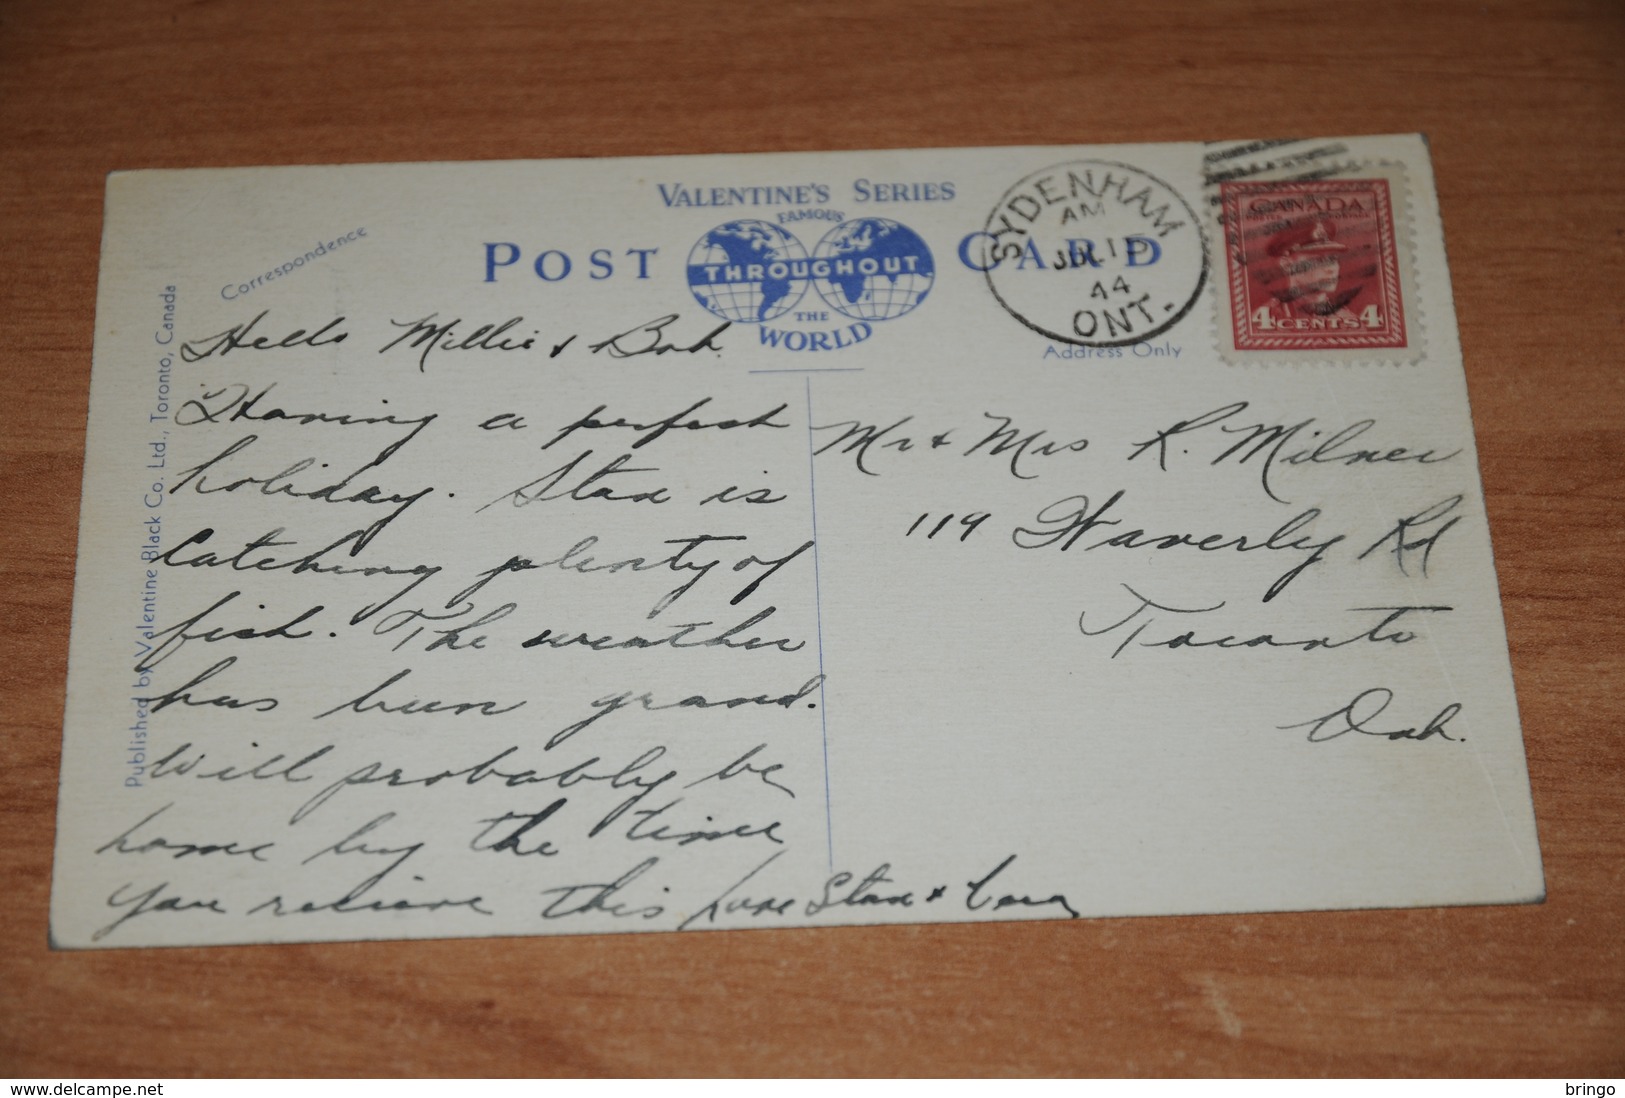 VALENTINE'S SERIES
FAMOUS
POST CARD
THROUGHOUT
THE
WORLD
Correspondence
Address Only
SYDENHAM
AM
JUL 15
44
ONT.
CANADA
4 CENTS 4
Published by Valentine Black Co. Ltd., Toronto, Canada
Hello Millie & Bob.
Having a perfect
holiday. Stan is
catching plenty of
fish. The weather
has been grand.
Will probably be
home by the time
you recieve this Love Stan &
Mr & Mrs R. Milner
119 Waverly Rd
Toronto
Ont.
delcampe.net
bringo